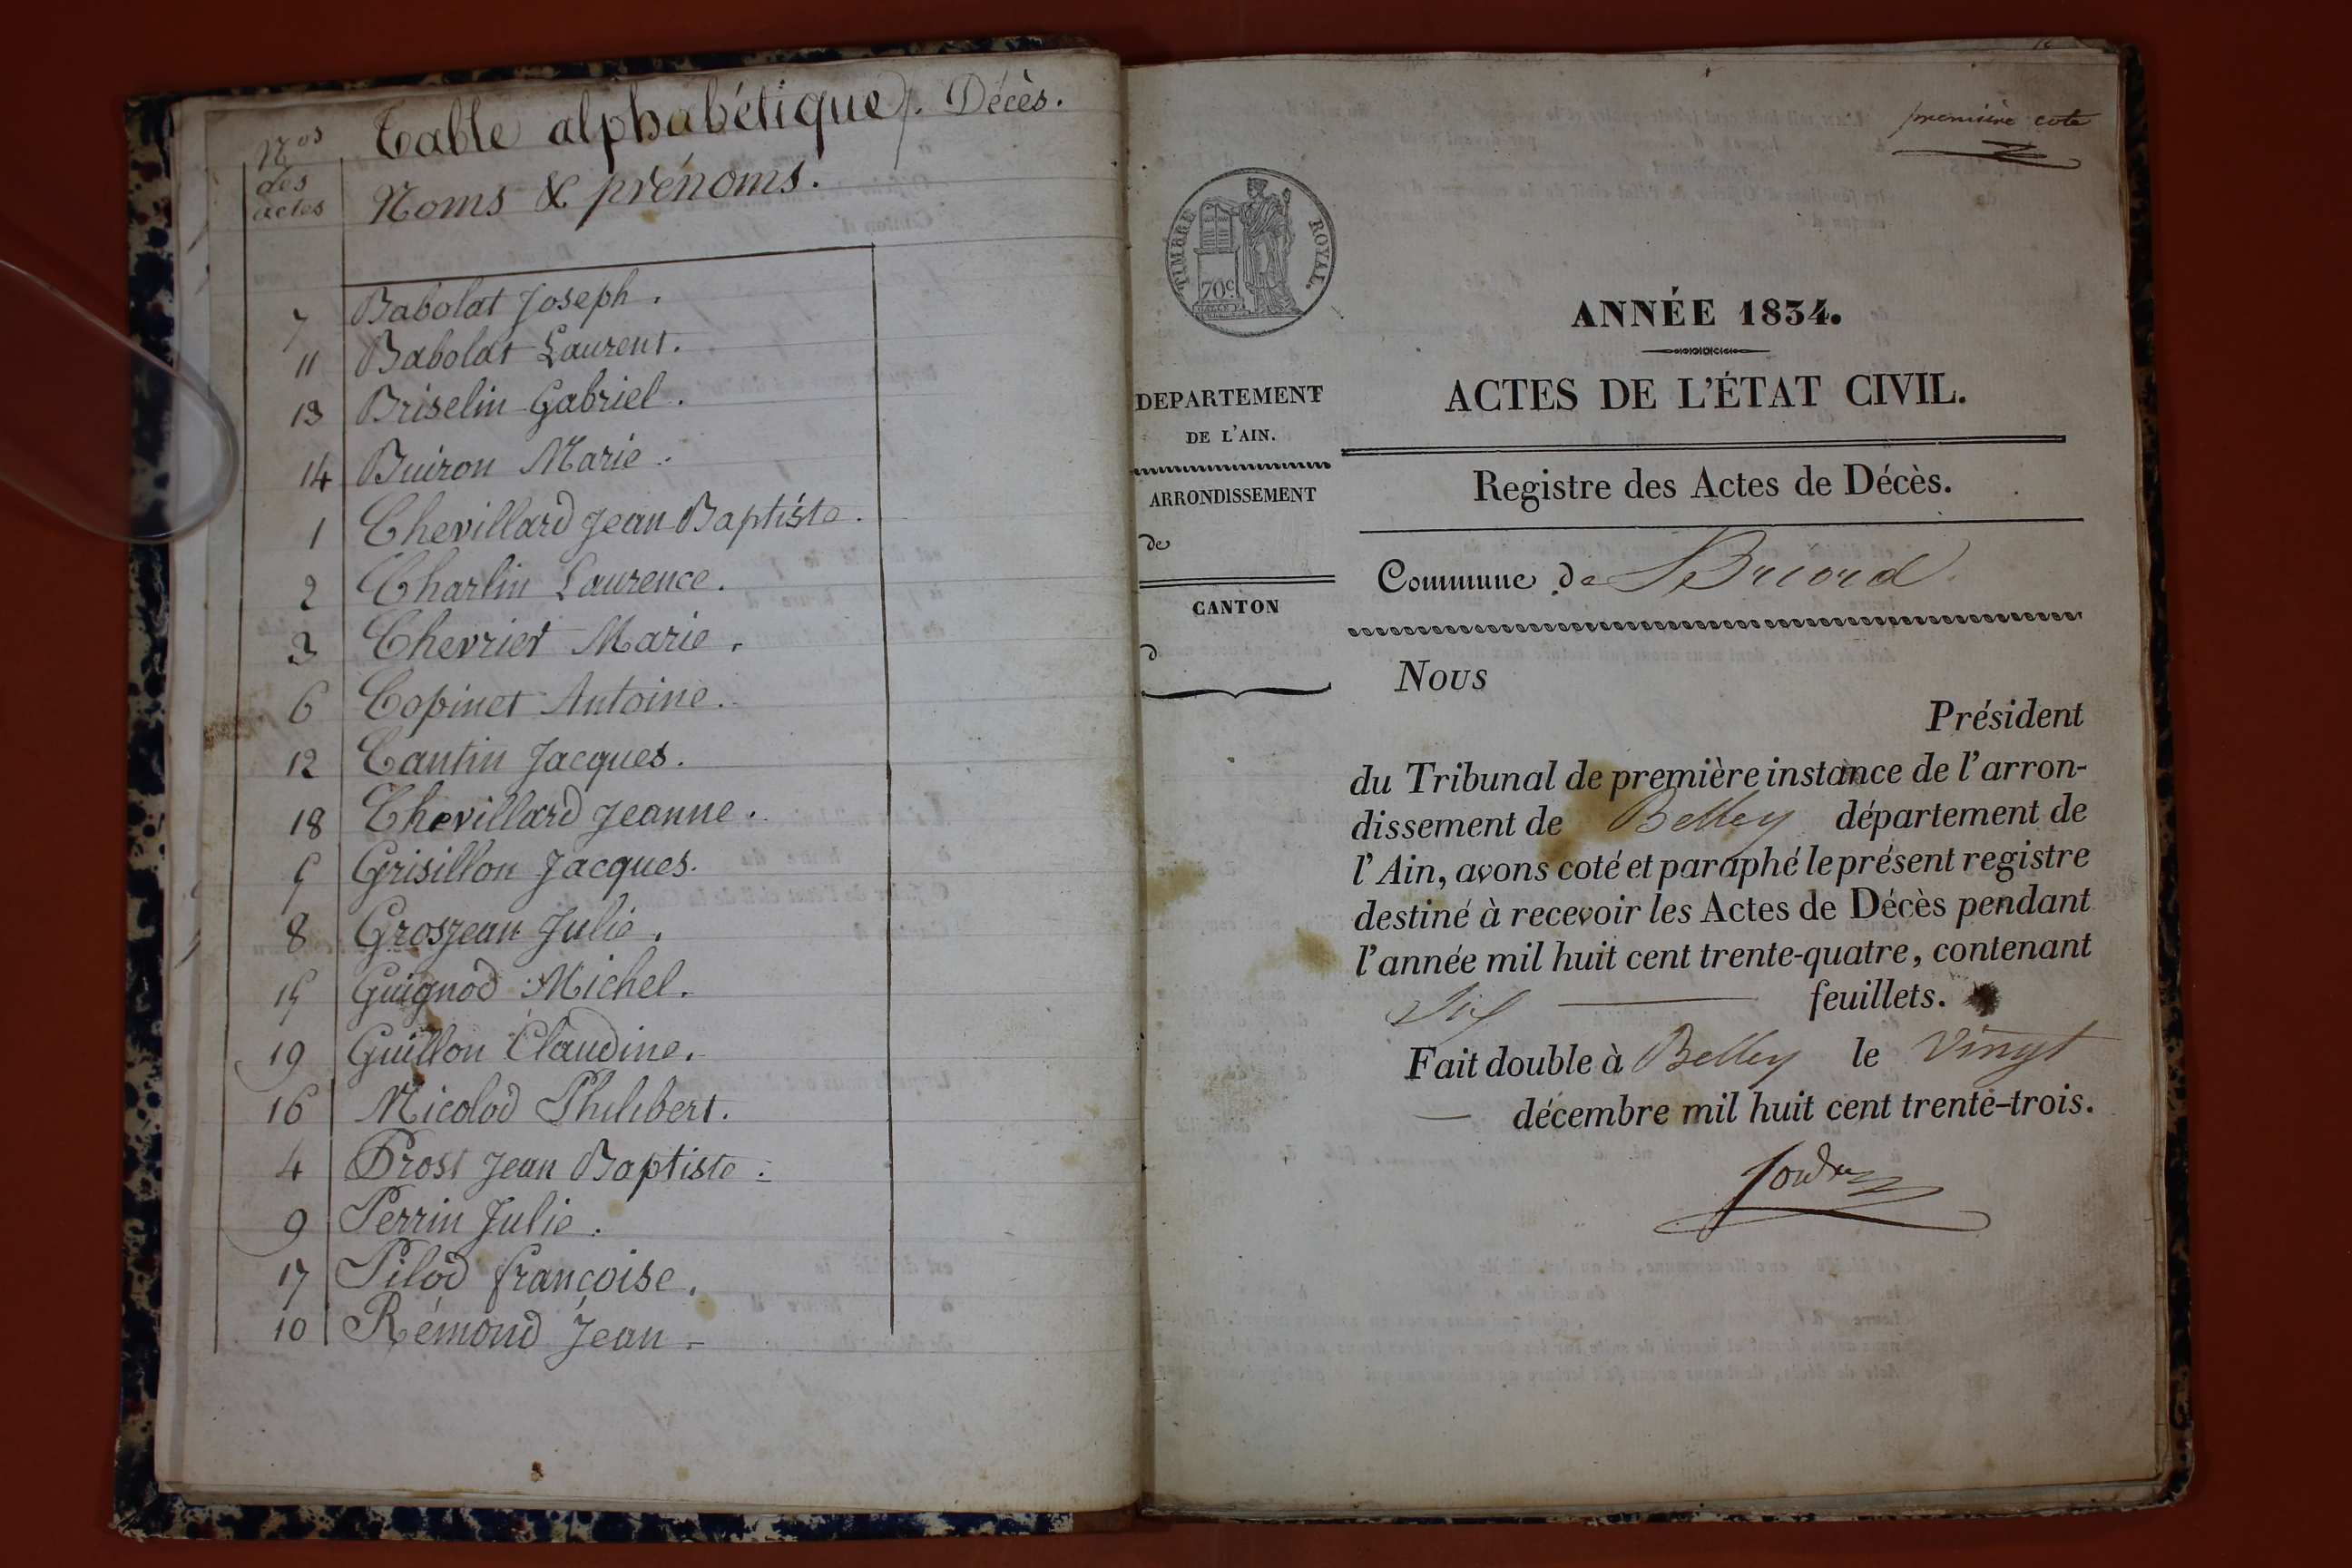 Table alphabétique. Décès.
Nos des actes
Noms & prénoms.
7 Babolat Joseph.
11 Babolat Laurent.
13 Briselin Gabriel.
14 Buiron Marie.
1 Chevillard Jean Baptiste.
2 Charlin Laurence.
3 Chevrier Marie.
6 Copinet Antoine.
12 Cantin Jacques.
18 Chevillard Jeanne.
5 Grisillon Jacques.
8 Grosjean Julie.
15 Guignod Michel.
19 Guillon Claudine.
16 Micolod Philibert.
4 Prost Jean Baptiste.
9 Perrin Julie.
17 Pilod françoise.
10 Rémond Jean.
première cote
TIMBRE ROYAL.
70c.
DEPARTEMENT
DE L'AIN.
ARRONDISSEMENT
de
CANTON
d
ANNÉE 1834.
ACTES DE L'ÉTAT CIVIL.
Registre des Actes de Décès.
Commune de Briord
Nous
Président
du Tribunal de première instance de l'arron-
dissement de Belley département de
l'Ain, avons coté et paraphé le présent registre
destiné à recevoir les Actes de Décès pendant
l'année mil huit cent trente-quatre, contenant
Six feuillets.
Fait double à Belley le vingt
décembre mil huit cent trente-trois.